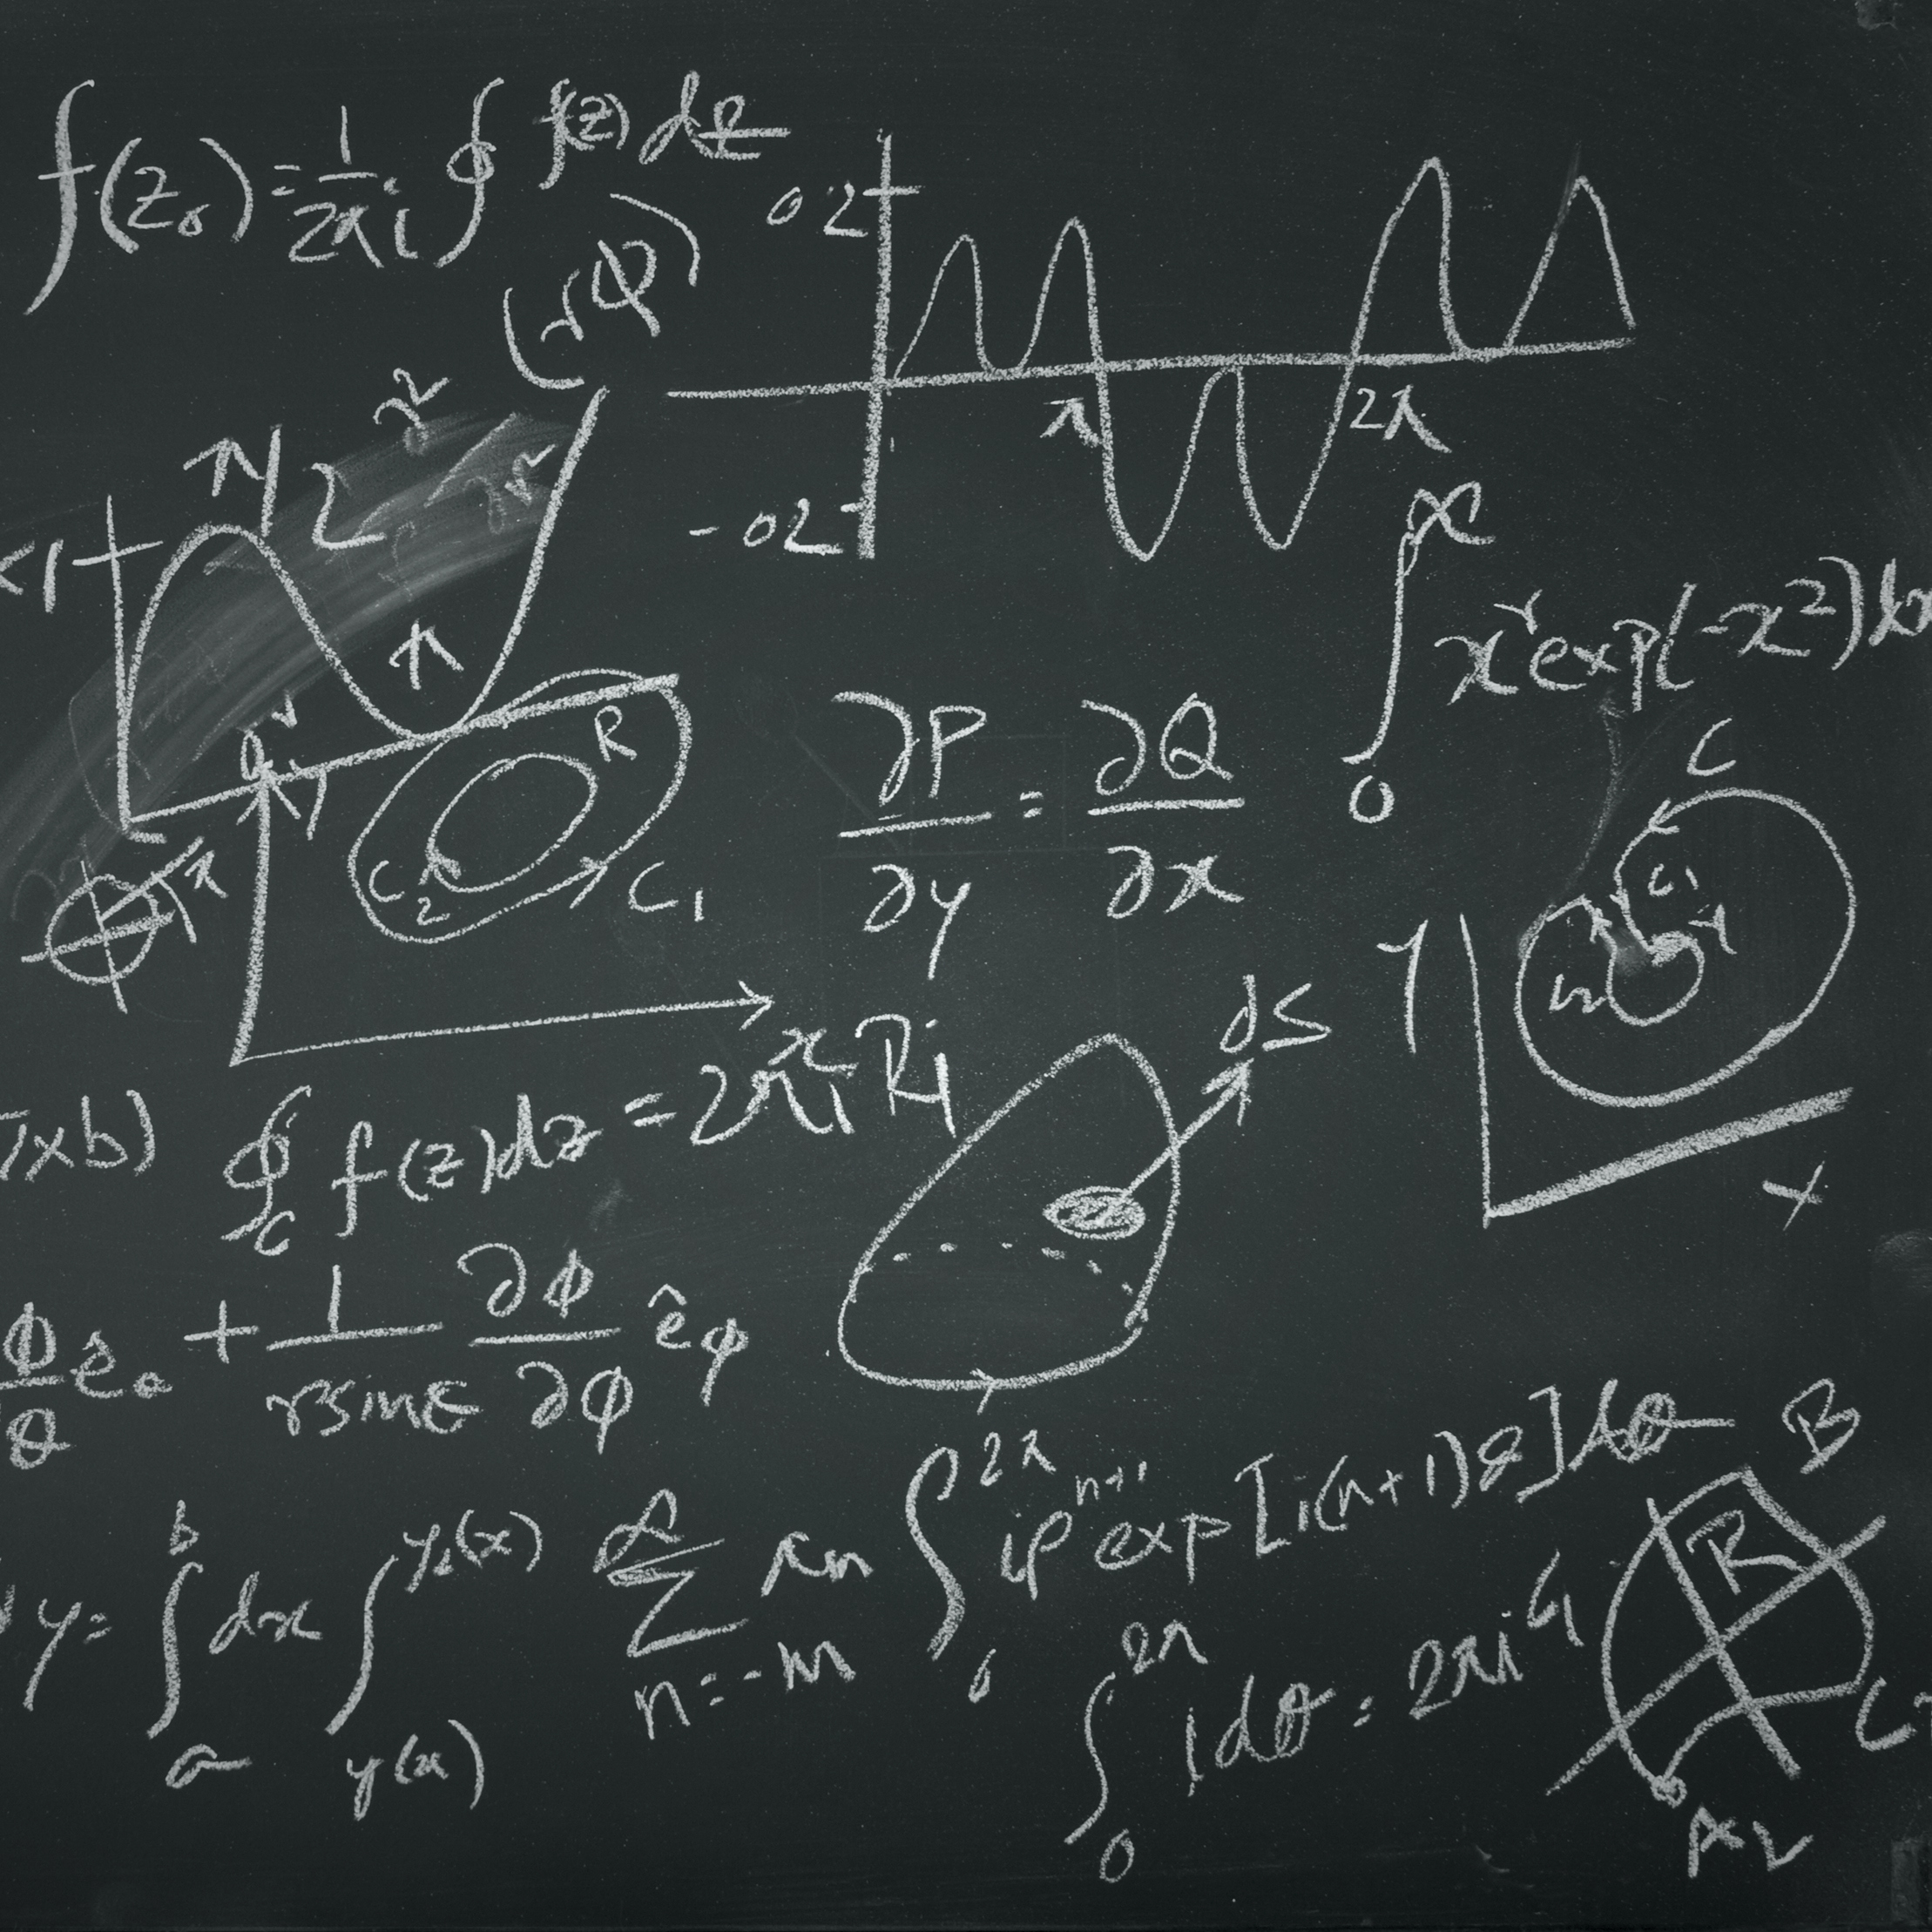 f(z₀) = 1/2πi ∮ f(z) dz
(rφ)
02
-02
π
2π
π/2
π
<1
R
C₂
C₁
∂P/∂y = ∂Q/∂x
∫₀^∞ x^r exp(-x²) dx
C
C₁
Y
X
dS
xb)
∮_C f(z)dz = 2πi Rj
φ/θ ê + 1/(r sinθ) ∂φ/∂φ ê_φ
y = ∫_a^b dx ∫_{y(x)}^{y₂(x)}
∑_{n=-m}^∞ ∫₀^{2π} iρ^{n+1} exp[i(n+1)θ]dθ
∫₀^{2π} i dθ = 2πi
B
R